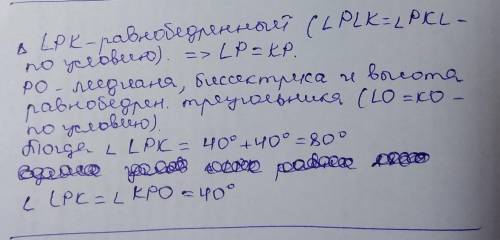 Δ LPK - равнобедренный (∠PLK=∠PKL-
по условию). => LP=KP.
PO - медиана, биссектриса и высота
равнобедрен. треугольника (LO=KO-
по условию).
Тогда ∠LPK = 40°+40°=80°
∠LPK=∠KPO=40°